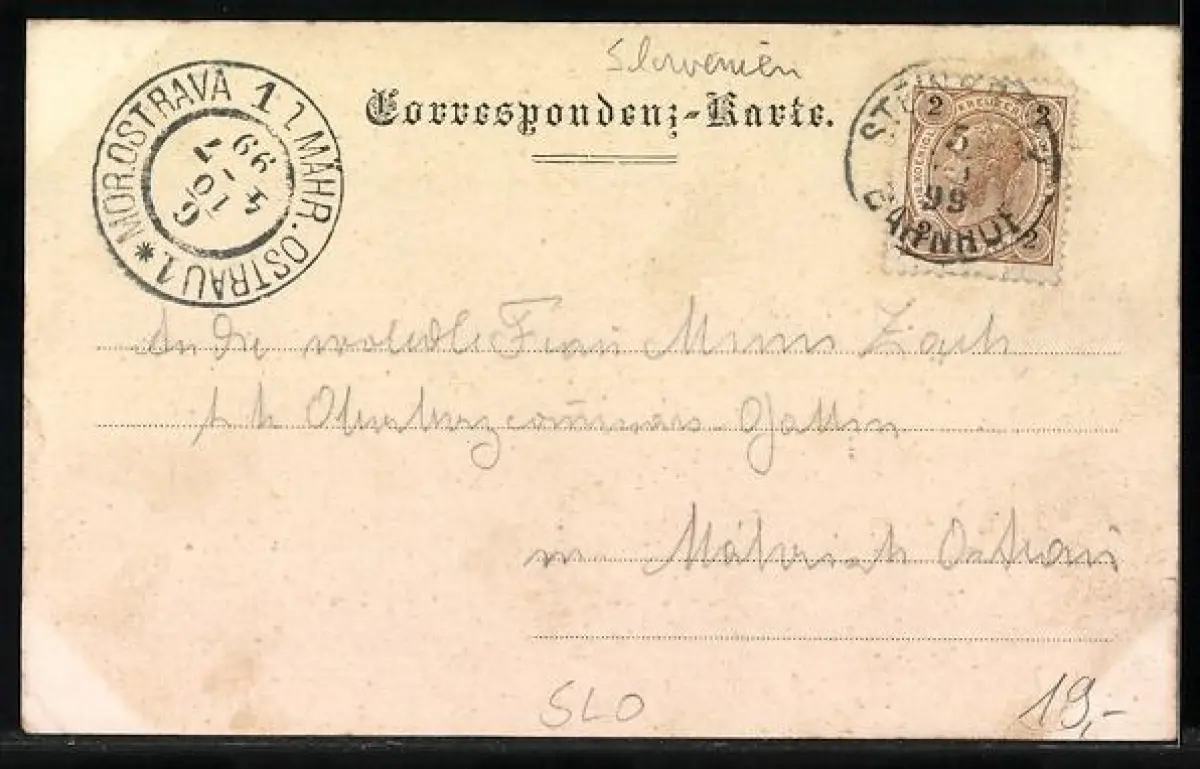 Slovenien
Correspondenz-Karte.
MOR.OSTRAVA 1 MÄHR.OSTRAU 1
99
BAHNHOF
99
2 2
2
An die wohledle Frau Minni Zach
k k Oberbergcommissärs-Gattin
in Mährisch Ostrau
SLO
19,-